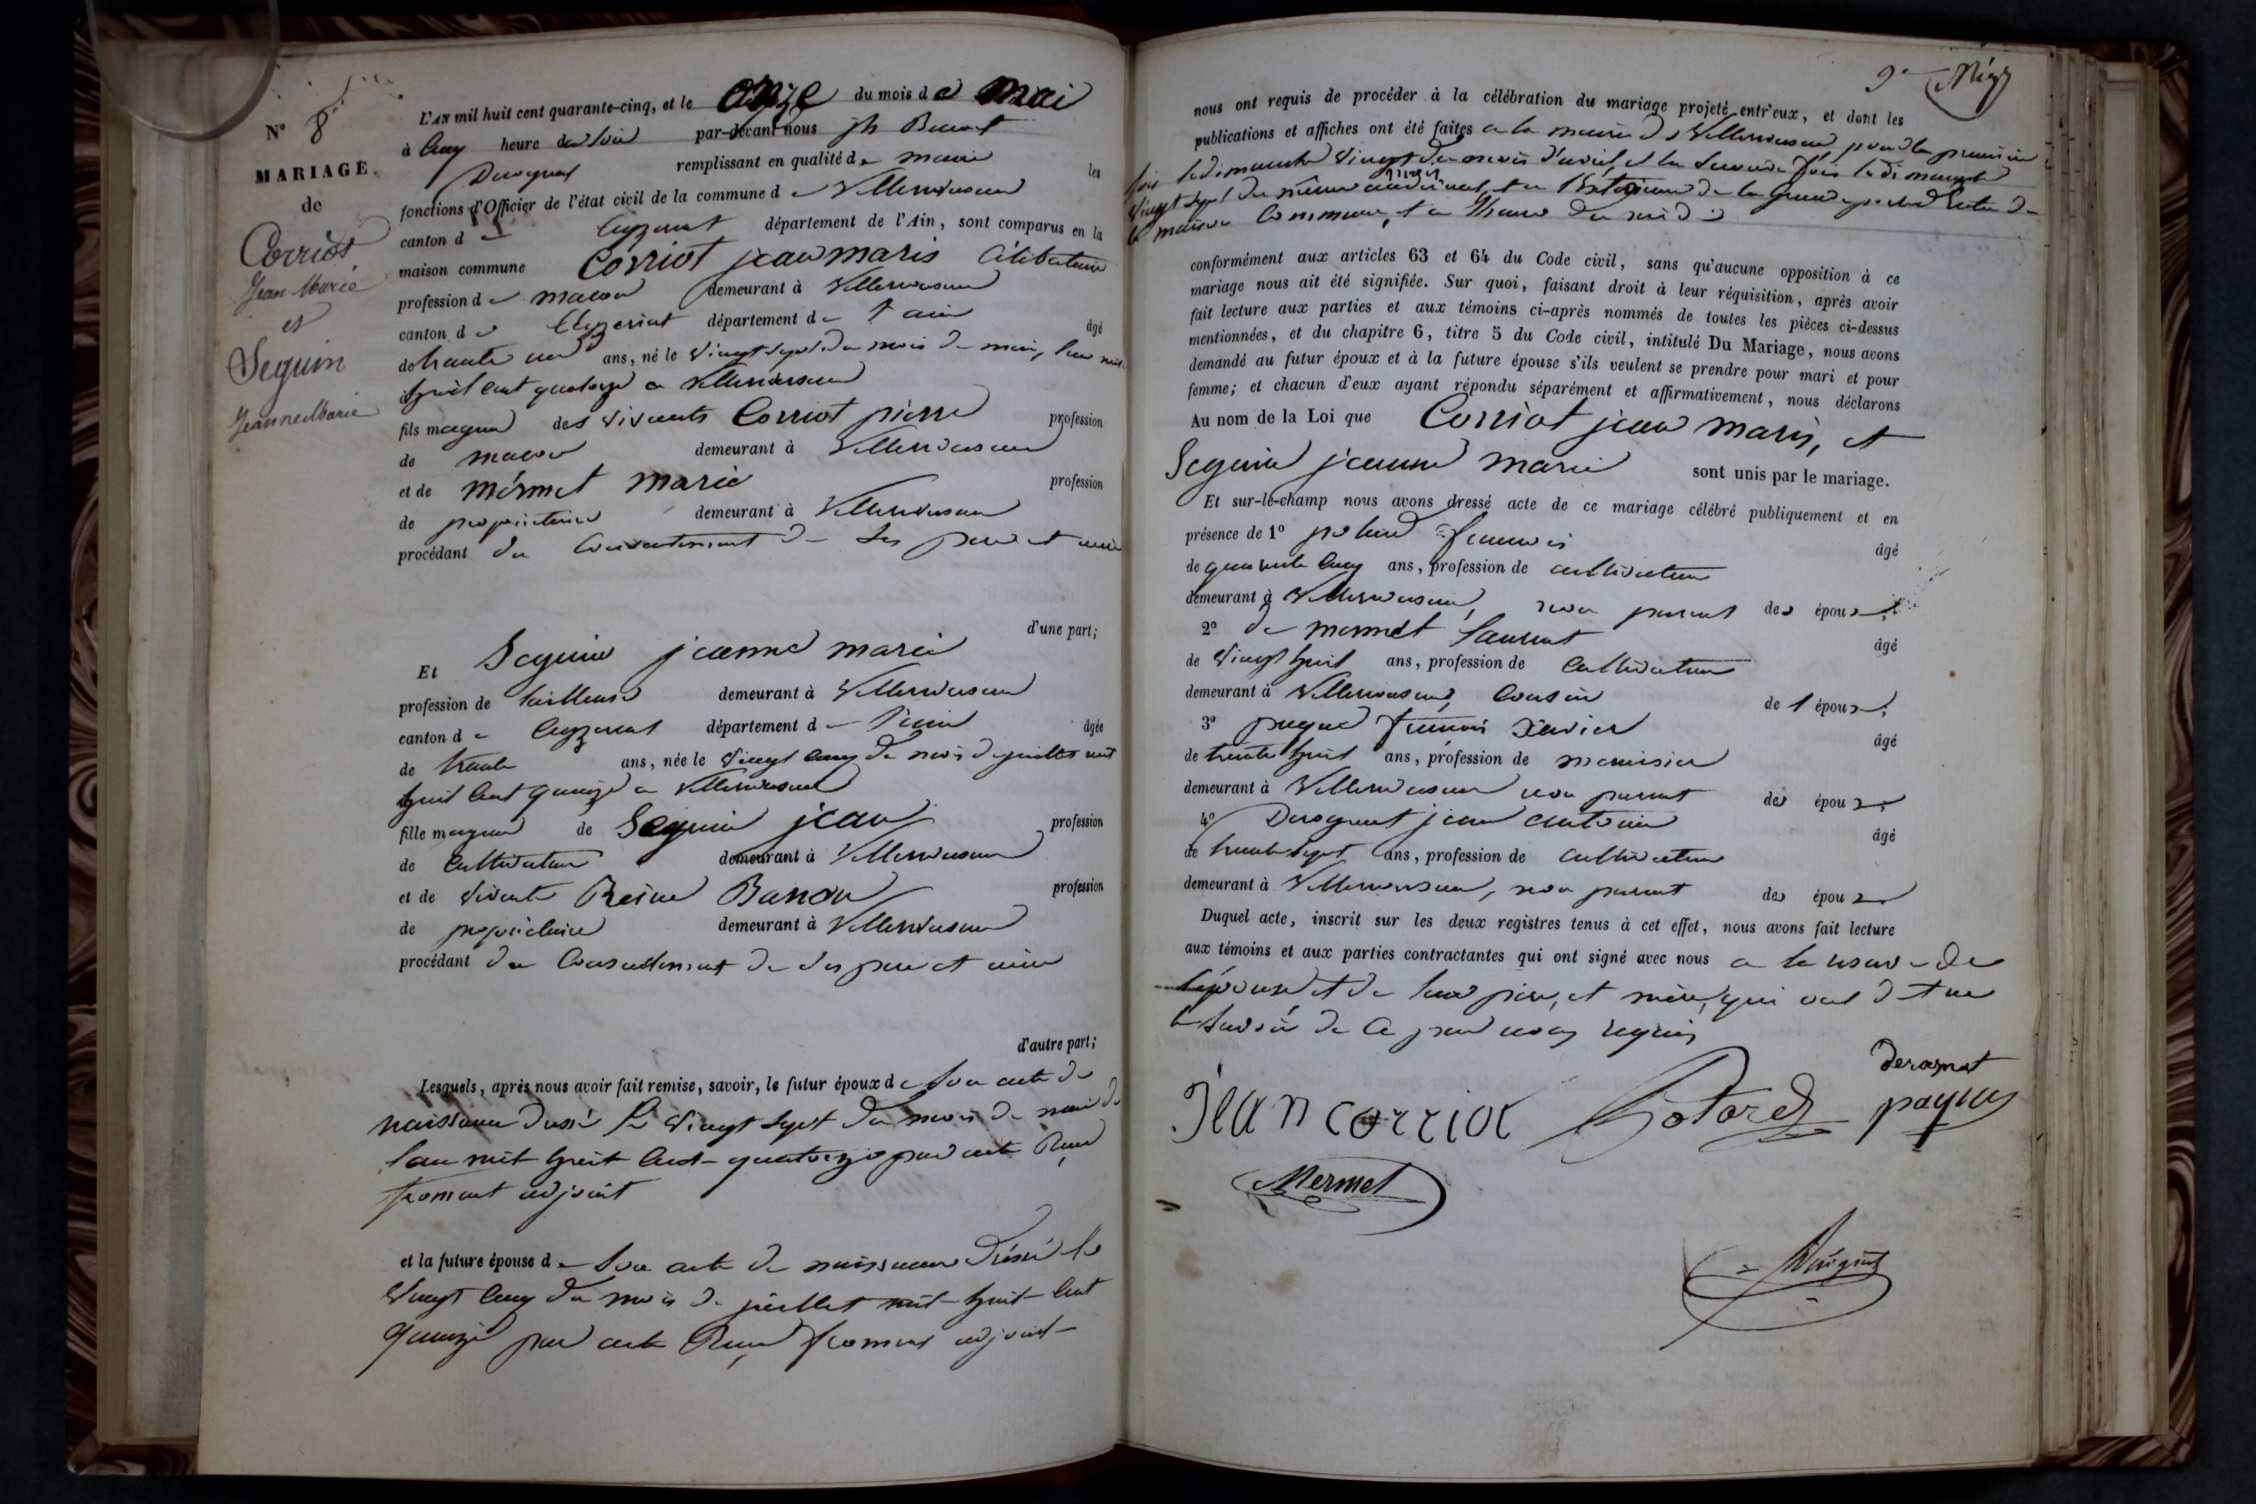 N° 8
MARIAGE
de
Corriot
Jean Marie
et
Seguin
Jeanne Marie
L'AN mil huit cent quarante-cinq, et le onze du mois de mai
à cinq heure du soir par-devant nous jh Benoit
Deroynat remplissant en qualité de maire les
fonctions d'Officier de l'état civil de la commune de Villereversure
canton de Ceyzeriat département de l'Ain, sont comparus en la
maison commune Corriot jean marie célibataire
profession de maçon demeurant à Villereversure
canton de Ceyzeriat département de l'ain âgé
de trente un ans, né le vingt sept du mois de mai, l'an mil
huit cent quatorze a Villereversure
fils majeur des vivants Corriot pierre profession
de maçon demeurant à Villereversure
et de mérmet marie profession
de propriétaire demeurant à Villereversure
procédant du consentement de ses pere et mère
d'une part;
Et Seguin jeanne marie
profession de tailleuse demeurant à Villereversure
canton de Ceyzeriat département de l'ain âgée
de trente ans, née le vingt cinq du mois de juillet mil
huit cent quinze a Villereversure
fille majeure de Seguin jean profession
de cultivateur demeurant à Villereversure
et de vivante Reine Banon profession
de propriétaire demeurant à Villereversure
procédant du consentement de ses pere et mère
d'autre part;
Lesquels, après nous avoir fait remise, savoir, le futur époux de son acte de
naissance dressé le vingt sept du mois de mai de
l'an mil huit cent quatorze par acte Reçu
froment adjoint
et la future épouse de son acte de naissance dréssé le
vingt cinq du mois de juillet mil huit cent
quinze par acte Reçu froment adjoint
nous ont requis de procéder à la célébration du mariage projeté entr'eux, et dont les
publications et affiches ont été faites a la mairie de Villereversure pour la premiere
fois le dimanche vingt du mois d'avril, et la seconde fois le dimanche
vingt sept du même mois de la grande porte d'entrée de
la maison commune, a l'heure de midi
conformément aux articles 63 et 64 du Code civil, sans qu'aucune opposition à ce
mariage nous ait été signifiée. Sur quoi, faisant droit à leur réquisition, après avoir
fait lecture aux parties et aux témoins ci-après nommés de toutes les pièces ci-dessus
mentionnées, et du chapitre 6, titre 5 du Code civil, intitulé Du Mariage, nous avons
demandé au futur époux et à la future épouse s'ils veulent se prendre pour mari et pour
femme; et chacun d'eux ayant répondu séparément et affirmativement, nous déclarons
Au nom de la Loi que Corriot jean marie, et
Seguin jeanne marie sont unis par le mariage.
Et sur-le-champ nous avons dressé acte de ce mariage célébré publiquement et en
présence de 1° françois âgé
de quarante cinq ans, profession de cultivateur
demeurant à Villereversure, non parent des époux.
2° de mermet laurent âgé
de vingt huit ans, profession de cultivateur
demeurant à Villereversure, cousin de l'époux;
3° françois Xavier âgé
de trente huit ans, profession de menuisier
demeurant à Villereversure non parent des époux;
4° Deroynat jean antoine âgé
de trente sept ans, profession de cultivateur
demeurant à Villereversure, non parent des époux
Duquel acte, inscrit sur les deux registres tenus à cet effet, nous avons fait lecture
aux témoins et aux parties contractantes qui ont signé avec nous a la réserve de
l'épouse et de leur père, et mère, qui ont dit ne
le savoir de ce par nous requis
Jean corriot
Mermet